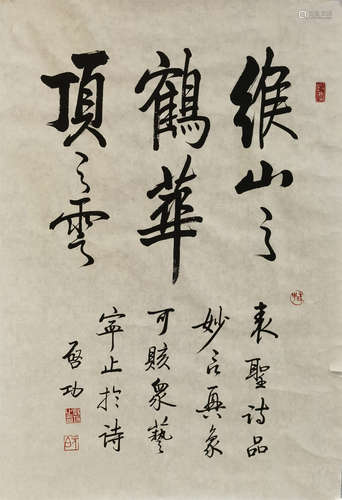 緱山之
鶴華
頂之雲
表聖詩品
妙言興象
可賅眾藝
寧止於詩
啓功